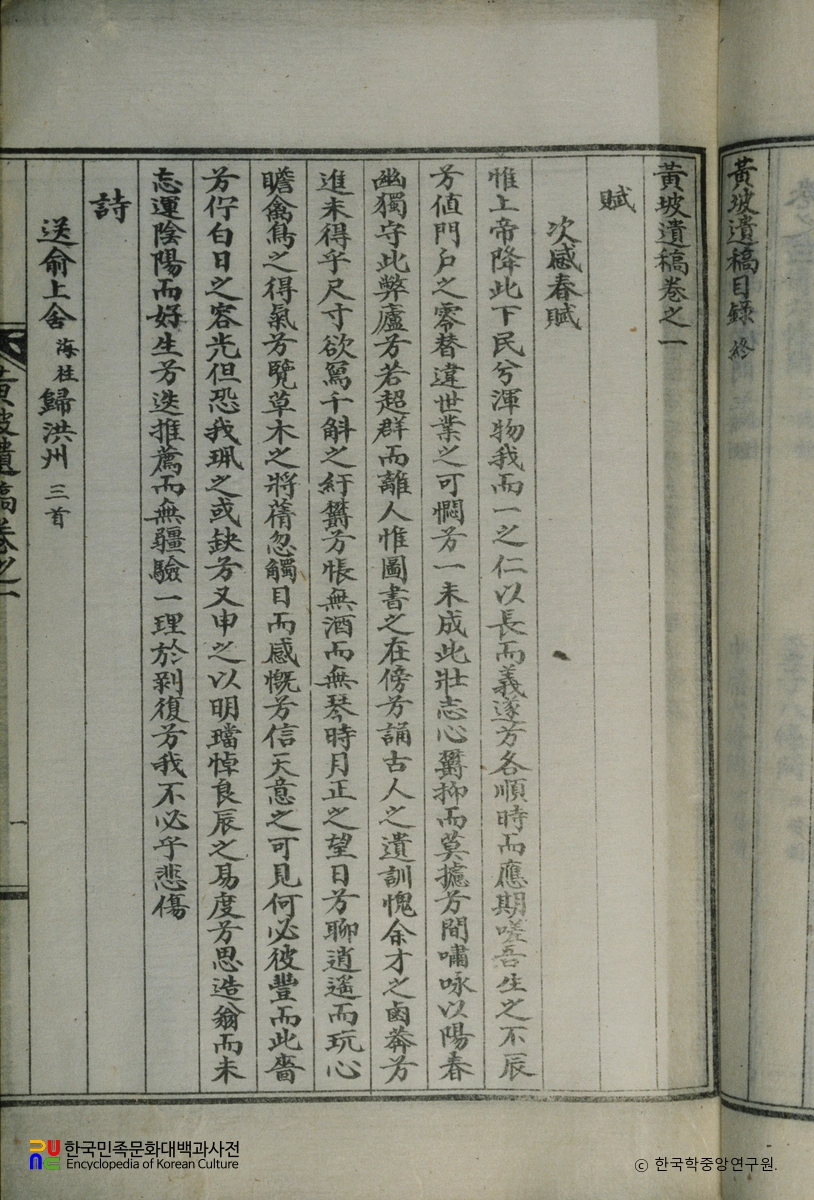 黃坡遺稿目錄 終
黃坡遺稿卷之一
賦
次感春賦
惟上帝降此下民兮渾物我而一之仁以長而義遂兮各順時而應期嗟吾生之不辰
兮値門戶之零替違世業之可憫兮一未成此壯志心鬱抑而莫攄兮間嘯咏以陽春
幽獨守此弊廬兮若超群而離人惟圖書之在傍兮誦古人之遺訓愧余才之鹵莽兮
進未得乎尺寸欲寫千斛之紆鬱兮悵無酒而無琴時月正之望日兮聊逍遙而玩心
瞻禽鳥之得氣兮覽草木之將蒨忽觸目而感慨兮信天意之可見何必彼豊而此嗇
兮佇白日之容光但恐我珮之或缺兮又申之以明璫悼良辰之易度兮思造翁而未
忘運陰陽而好生兮迭推薦而無疆驗一理於剝復兮我不必乎悲傷
詩
送俞上舍 海柱 歸洪州 三首
黃坡遺稿卷之一
一
한국민족문화대백과사전
Encyclopedia of Korean Culture
© 한국학중앙연구원.